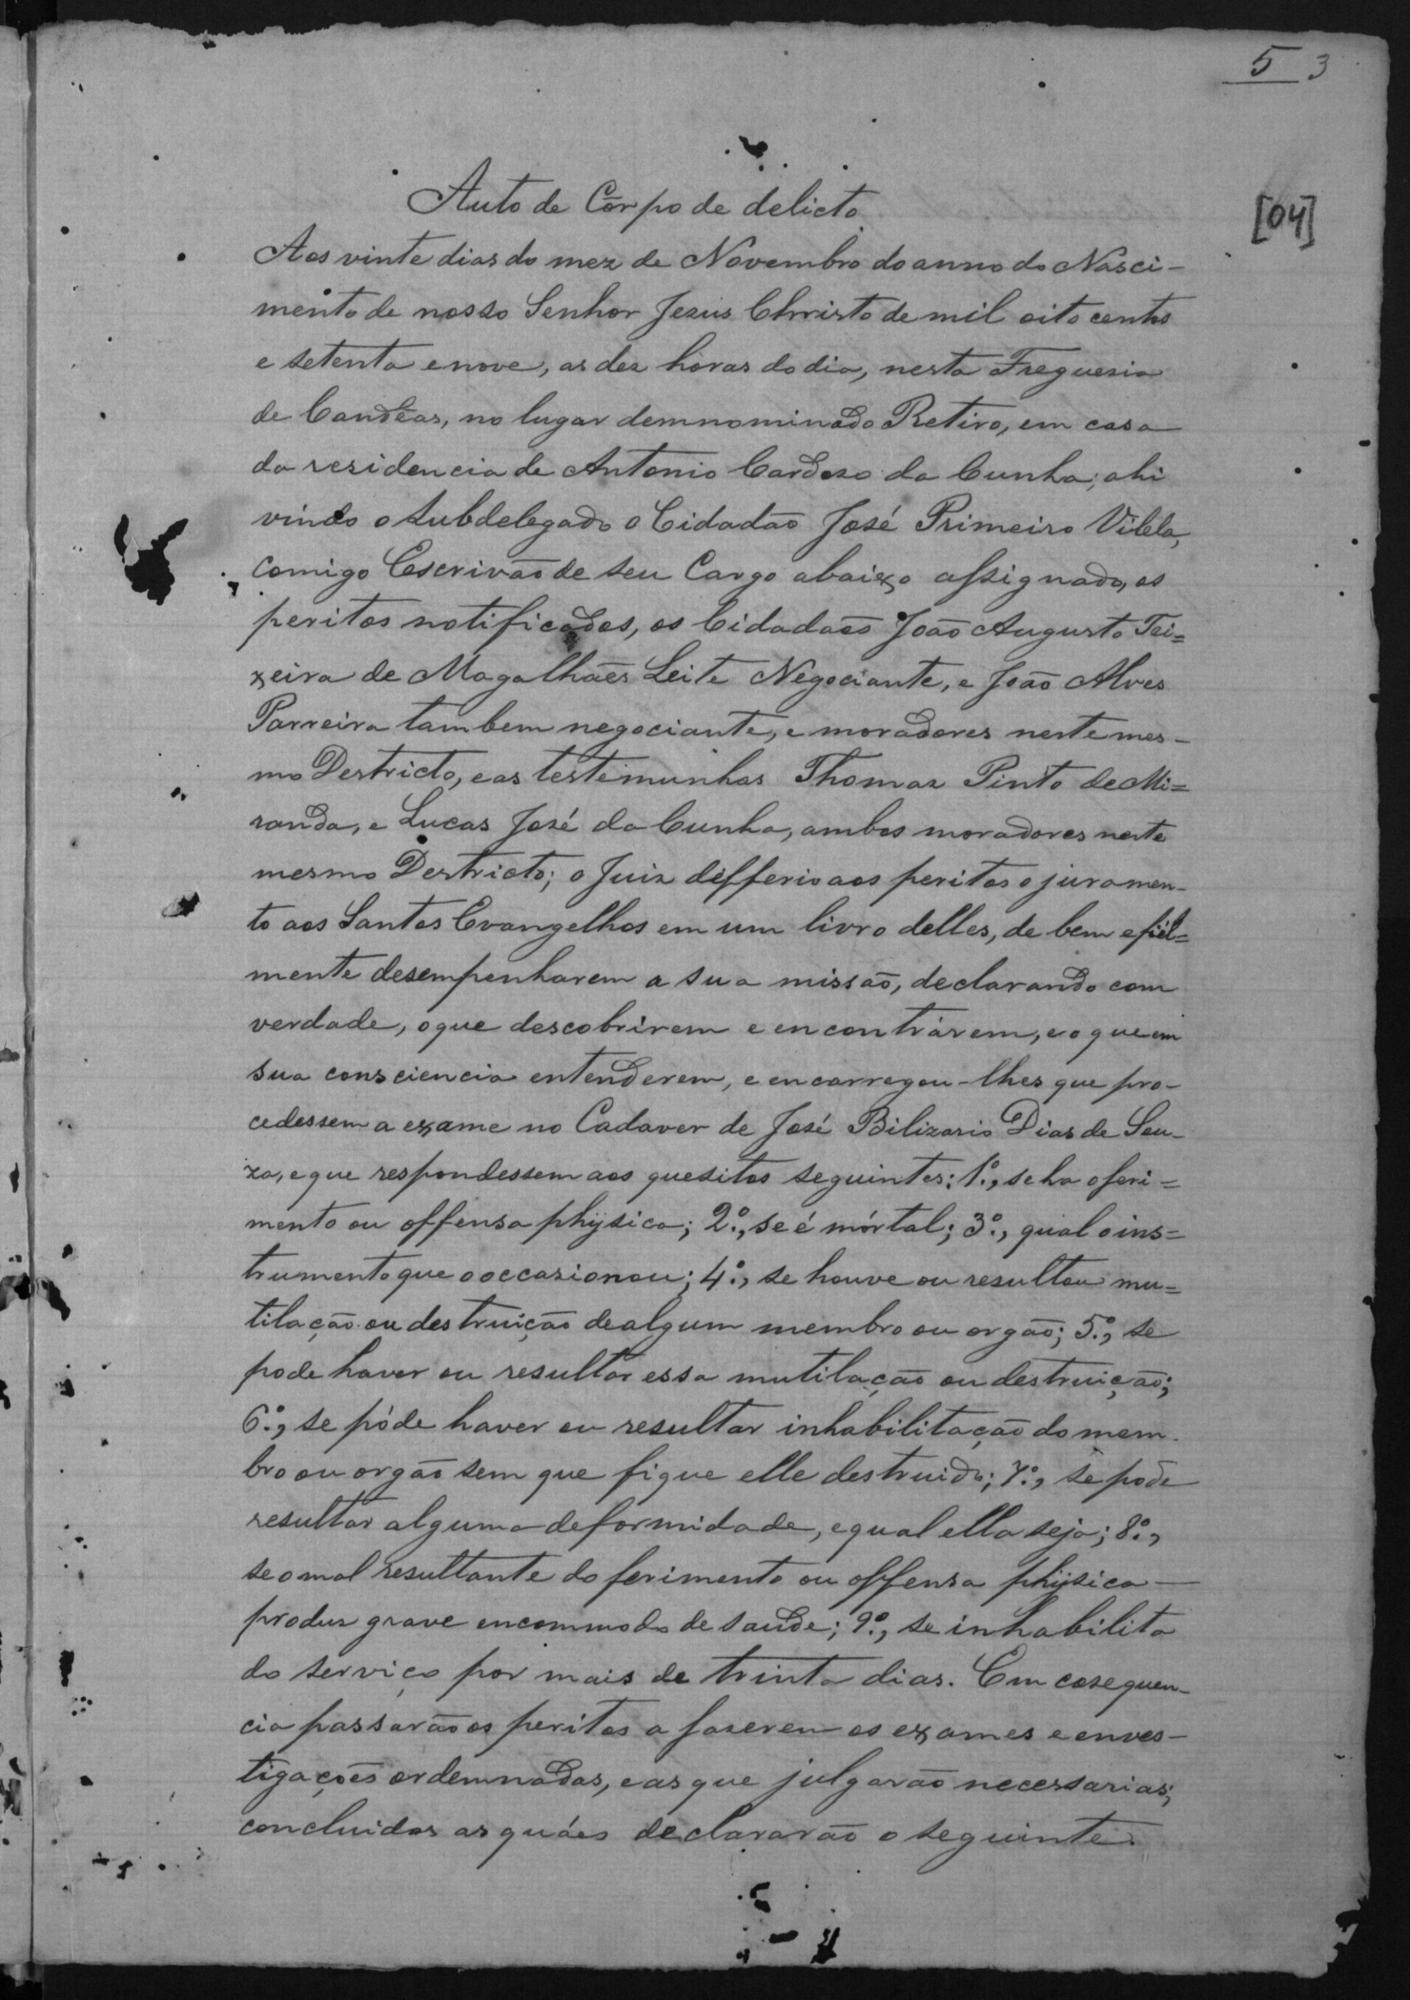 5 3
[04]
Auto de Côrpo de delicto
Aos vinte dias do mez de Novembro do anno do Nasci-
mento de nosso Senhor Jezus Christo de mil oito centos
e setenta e nove, as dez horas do dia, nesta Freguesia
de Candêas, no lugar demnominado Retiro, em casa
da residencia de Antonio Cardozo da Cunha; ahi
vindo o Subdelegado o Cidadão José Primeiro Vilela,
comigo Escrivão de seu Cargo abaixo assignado, os
peritos notificados, os Cidadãos João Augusto Tei=
xeira de Magalhães Leite Negociante, e João Alves
Parreira tambem negociante, e moradores neste mes-
mo Destricto, e as testimunhas Thomaz Pinto de Mi=
randa, e Lucas José da Cunha, ambos moradores neste
mesmo Destricto; o Juiz defferio aos peritos o juramen-
to aos Santos Evangelhos em um livro delles, de bem e fiel=
mente desempenharem a sua missão, declarando com
verdade, o que descobrirem e encontrárem, e o que em
sua consciencia entenderem, e encarregou-lhes que pro-
cedessem a exame no Cadaver de José Bilizario Dias de Sou-
za, e que respondessem aos quesitos seguintes: 1º, se ha o feri=
mento ou offensa physica; 2º, se é mórtal; 3º, qual o ins=
trumento que o occazionou; 4º, se houve ou resultou mu=
tilação ou destruição de algum membro ou orgão; 5º, se
pode haver ou resultar essa mutilação ou destruição;
6º, se póde haver ou resultar inhabilitação do mem-
bro ou orgão sem que fique elle destruido; 7º, se pode
resultar alguma deformidade, e qual ella seja; 8º,
se o mal resultante do ferimento ou offensa physica —
produz grave encommodo de saude; 9º, se inhabilita
do serviço por mais de trinta dias. Em cosequen-
cia passarão os peritos a fazerem os exames e enves-
tigações ordemnadas, e as que julgarão necessarias;
concluidas as quáes declararão o seguinte.